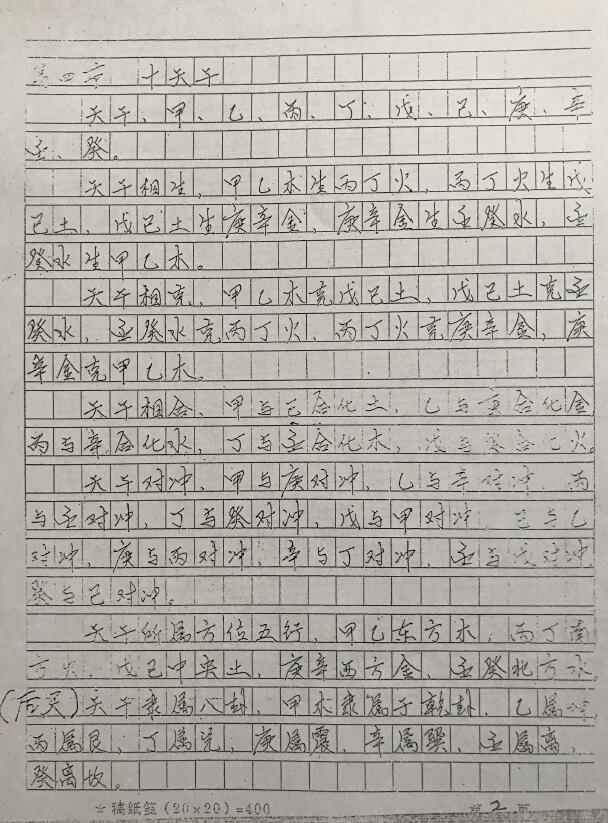 第四章 十天干
天干、甲、乙、丙、丁、戊、己、庚、辛
壬、癸。
天干相生，甲乙木生丙丁火，丙丁火生戊
己土，戊己土生庚辛金，庚辛金生壬癸水，壬
癸水生甲乙木。
天干相克，甲乙木克戊己土，戊己土克壬
癸水，壬癸水克丙丁火，丙丁火克庚辛金，庚
辛金克甲乙木。
天干相合，甲与己合化土，乙与庚合化金
丙与辛合化水，丁与壬合化木，戊与癸合化火。
天干对冲，甲与庚对冲，乙与辛对冲，丙
与壬对冲，丁与癸对冲，戊与甲对冲，己与乙
对冲，庚与丙对冲，辛与丁对冲，壬与戊对冲
癸与己对冲。
天干所属方位五行，甲乙东方木，丙丁南
方火，戊己中央土，庚辛西方金，壬癸北方水。
(后天)天干隶属八卦，甲木隶属于乾卦，乙属坤，
丙属艮，丁属兑，庚属震，辛属巽，壬属离，
癸离坎。
☆稿纸笺(20×20)=400 第2页